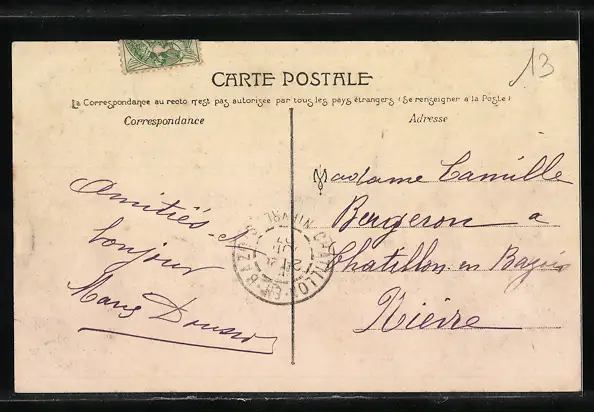 13
CARTE POSTALE
La Correspondance au recto n'est pas autorisée par tous les pays étrangers (Se renseigner à la Poste)
Correspondance
Adresse
Amitiés et
bonjour
Madame Camille
Bergeron a
Chatillon en Bazois
Nièvre
CHATILLON-EN-BAZOIS